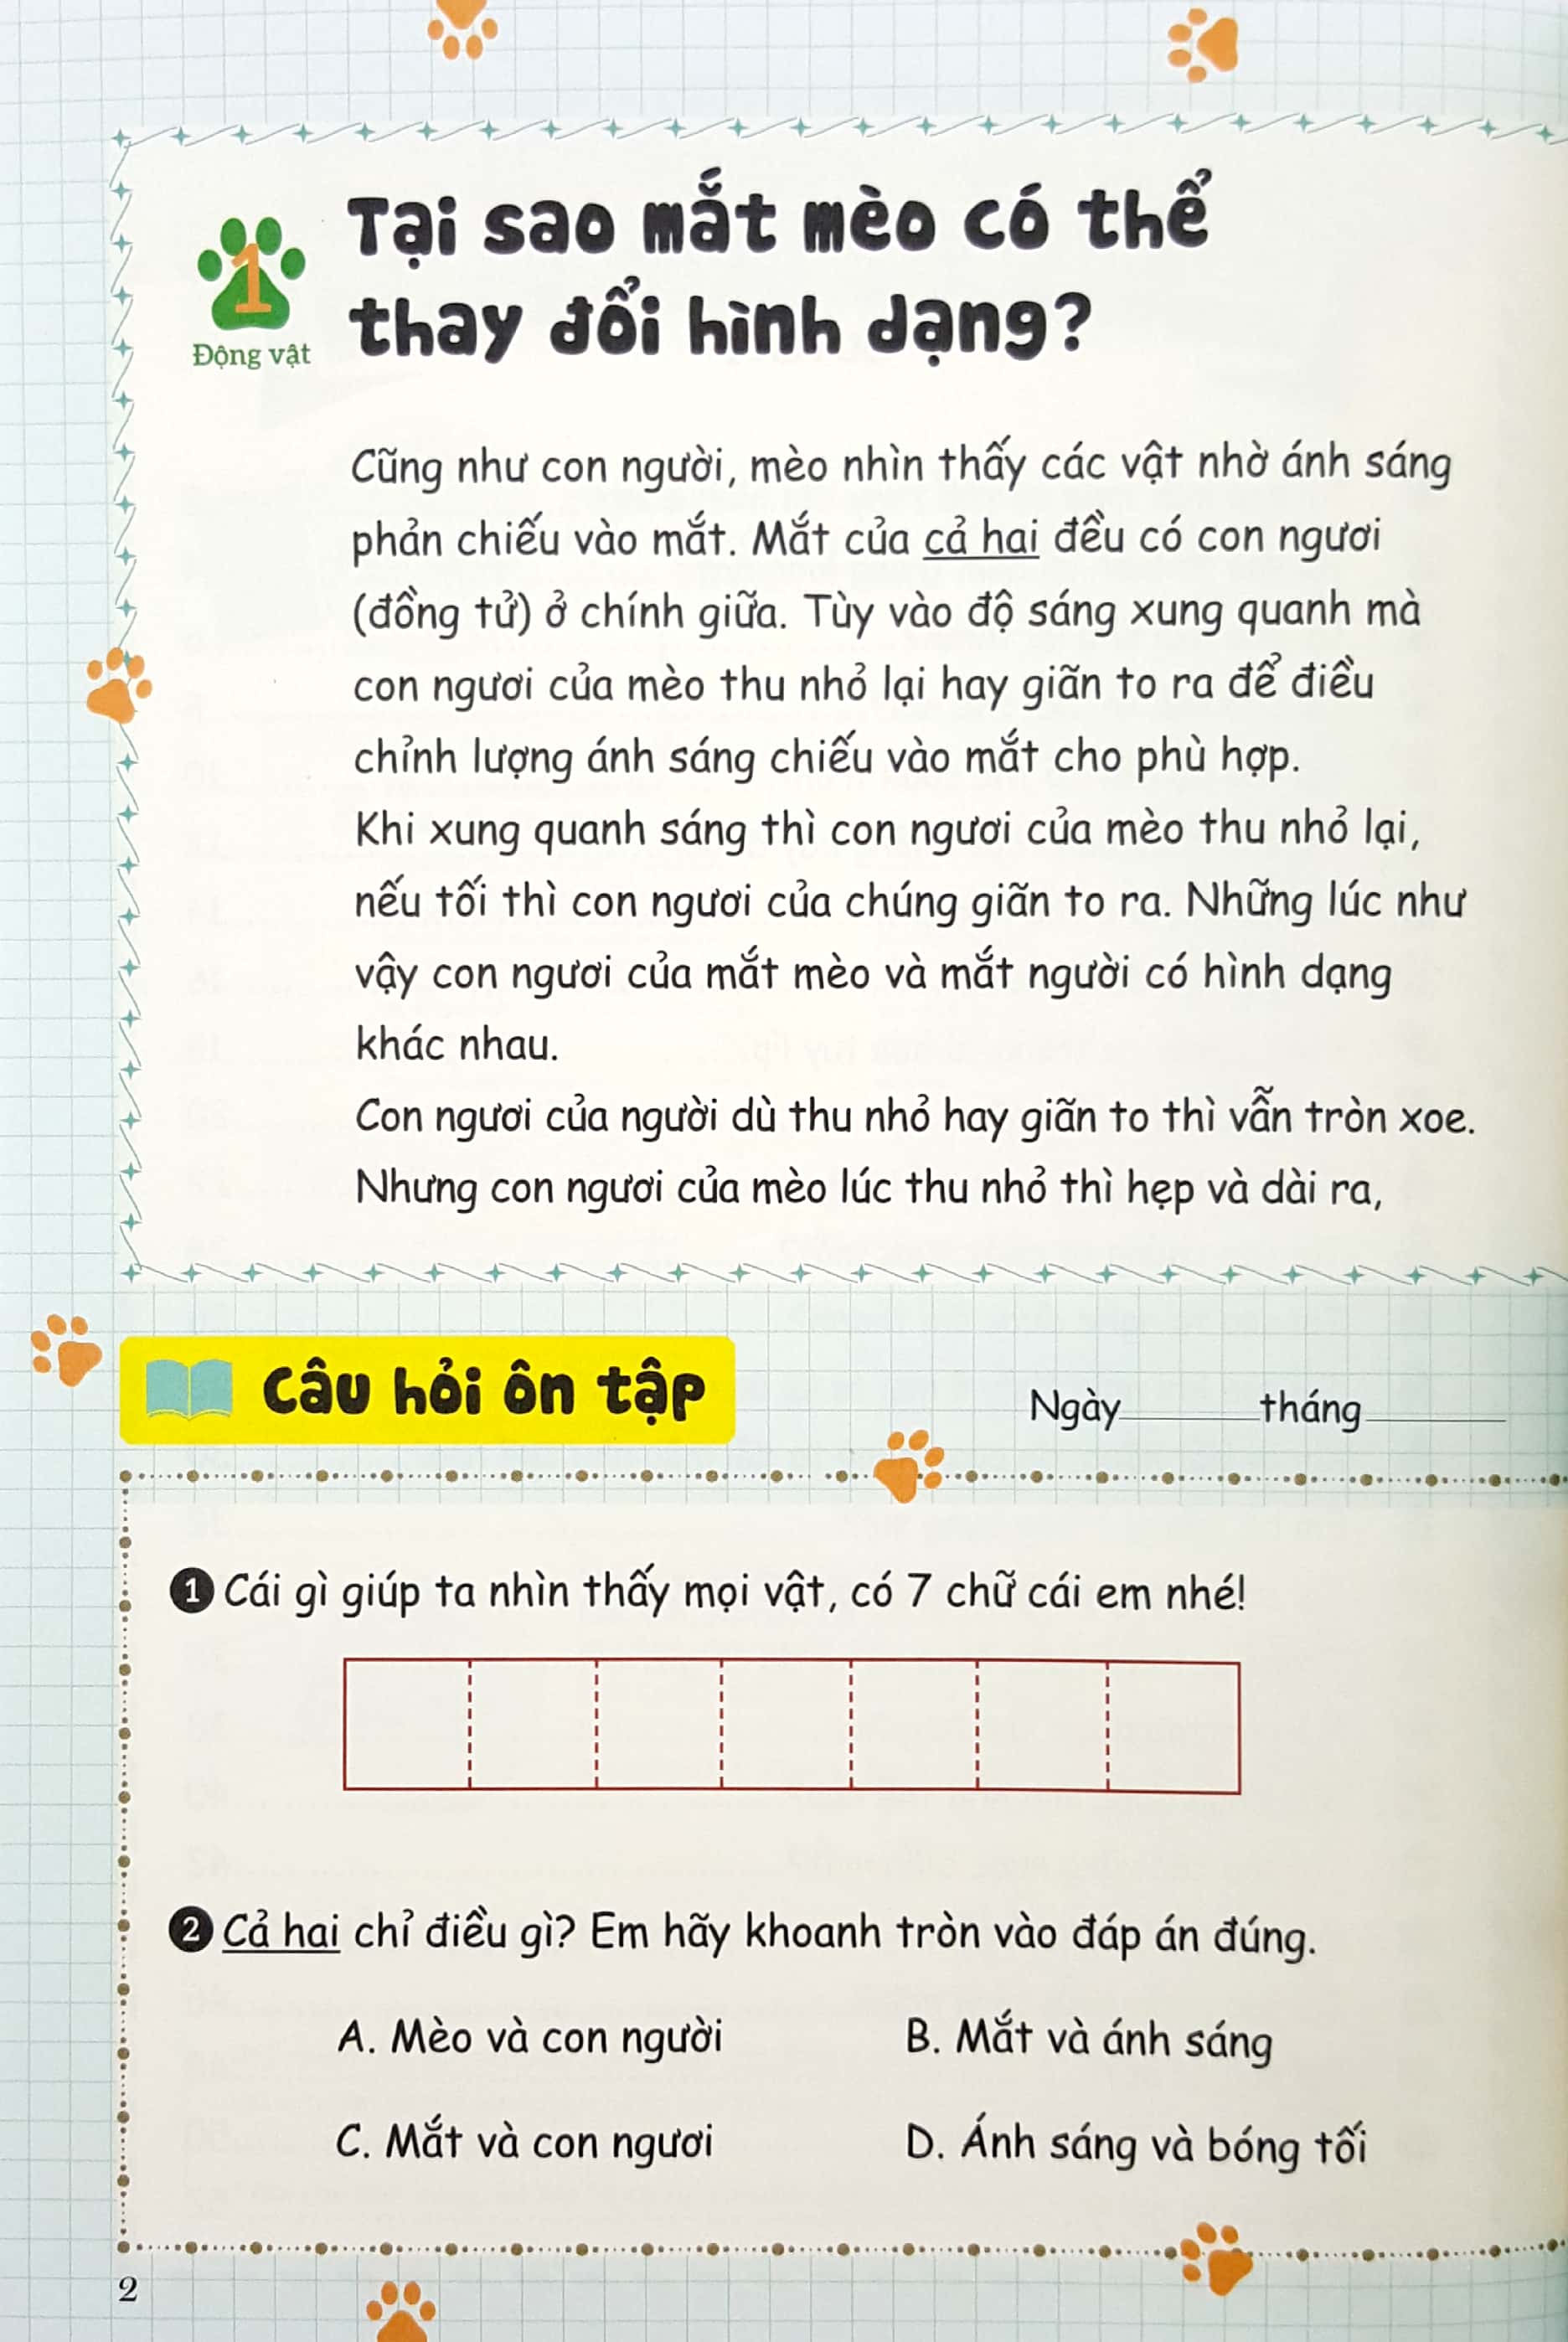 Tại sao mắt mèo có thể
thay đổi hình dạng?
1
Động vật
Cũng như con người, mèo nhìn thấy các vật nhờ ánh sáng
phản chiếu vào mắt. Mắt của cả hai đều có con ngươi
(đồng tử) ở chính giữa. Tùy vào độ sáng xung quanh mà
con ngươi của mèo thu nhỏ lại hay giãn to ra để điều
chỉnh lượng ánh sáng chiếu vào mắt cho phù hợp.
Khi xung quanh sáng thì con ngươi của mèo thu nhỏ lại,
nếu tối thì con ngươi của chúng giãn to ra. Những lúc như
vậy con ngươi của mắt mèo và mắt người có hình dạng
khác nhau.
Con ngươi của người dù thu nhỏ hay giãn to thì vẫn tròn xoe.
Nhưng con ngươi của mèo lúc thu nhỏ thì hẹp và dài ra,
Câu hỏi ôn tập
Ngày tháng
1 Cái gì giúp ta nhìn thấy mọi vật, có 7 chữ cái em nhé!
2 Cả hai chỉ điều gì? Em hãy khoanh tròn vào đáp án đúng.
A. Mèo và con người B. Mắt và ánh sáng
C. Mắt và con ngươi D. Ánh sáng và bóng tối
2